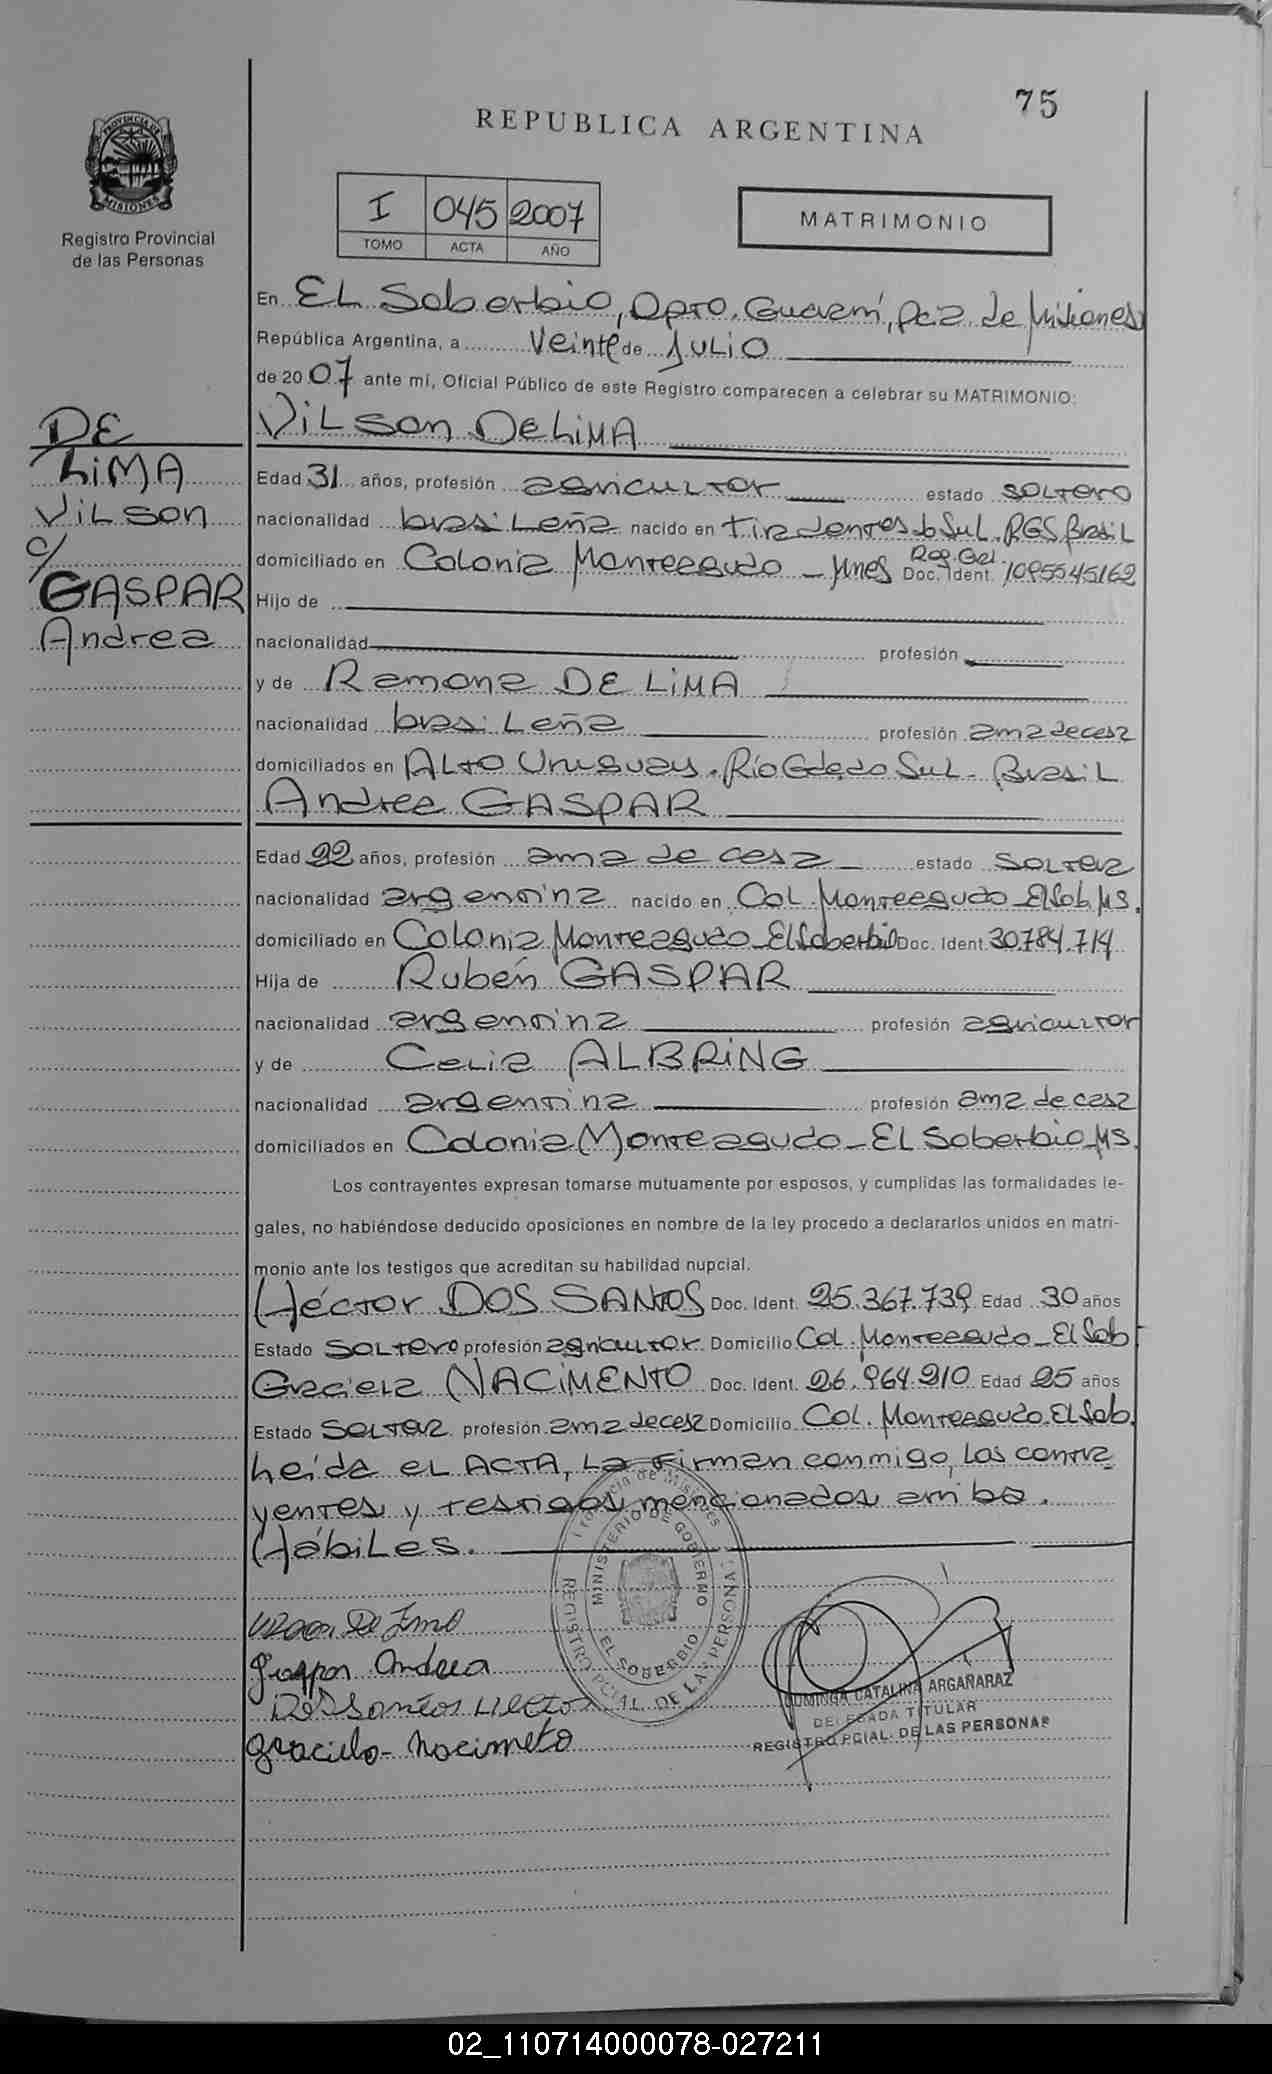 75
REPUBLICA ARGENTINA
PROVINCIA DE MISIONES
Registro Provincial
de las Personas
I 045 2007
TOMO ACTA AÑO
MATRIMONIO
En EL Soberbio, Dpto. Guaraní, Pcia de Misiones
República Argentina, a Veinte de JULIO
de 20 07 ante mí, Oficial Público de este Registro comparecen a celebrar su MATRIMONIO:
DE
LiMA
ViLson
c/
GASPAR
Andrea
ViLson DE LiMA
Edad 31 años, profesión agricultor estado soltero
nacionalidad brasiLeña nacido en Tiradentes do Sul. RGS Brasil
domiciliado en Colonia Monteagudo - Mnes Reg. Gel. Doc. Ident. 1095545162
Hijo de
nacionalidad profesión
y de Ramona DE LiMA
nacionalidad brasiLeña profesión ama de casa
domiciliados en ALto Uruguay. Río Gde do Sul - Brasil
Andrea GASPAR
Edad 22 años, profesión ama de casa estado soltera
nacionalidad argentina nacido en Col. Monteagudo - El Sob. MS.
domiciliado en Colonia Monteagudo - El Soberbio Doc. Ident. 30.784.714
Hija de Rubén GASPAR
nacionalidad argentina profesión agricultor
y de Celia ALBRiNG
nacionalidad argentina profesión ama de casa
domiciliados en Colonia Monteagudo - EL Soberbio - MS.
Los contrayentes expresan tomarse mutuamente por esposos, y cumplidas las formalidades le-
gales, no habiéndose deducido oposiciones en nombre de la ley procedo a declararlos unidos en matri-
monio ante los testigos que acreditan su habilidad nupcial.
Héctor DOS SANTOS Doc. Ident. 25.367.739 Edad 30 años
Estado soltero profesión agricultor Domicilio Col. Monteagudo - El Sob
Graciela NACiMENTO Doc. Ident. 26.964.210 Edad 25 años
Estado soltera profesión ama de casa Domicilio Col. Monteagudo. El Sob.
Leída el ACTA, la firman conmigo, los contra
yentes y testigos mencionados arriba.
Hábiles.
Provincia de Misiones
MINISTERIO DE GOBIERNO
EL SOBERBIO
REGISTRO PCIAL. DE LAS PERSONAS
De Lima
Gaspar Andrea
Dos Santos Hector
Graciela - Nacimeto
DOMINGA CATALINA ARGAÑARAZ
DELEGADA TITULAR
REGISTRO PCIAL. DE LAS PERSONAS
02_110714000078-027211